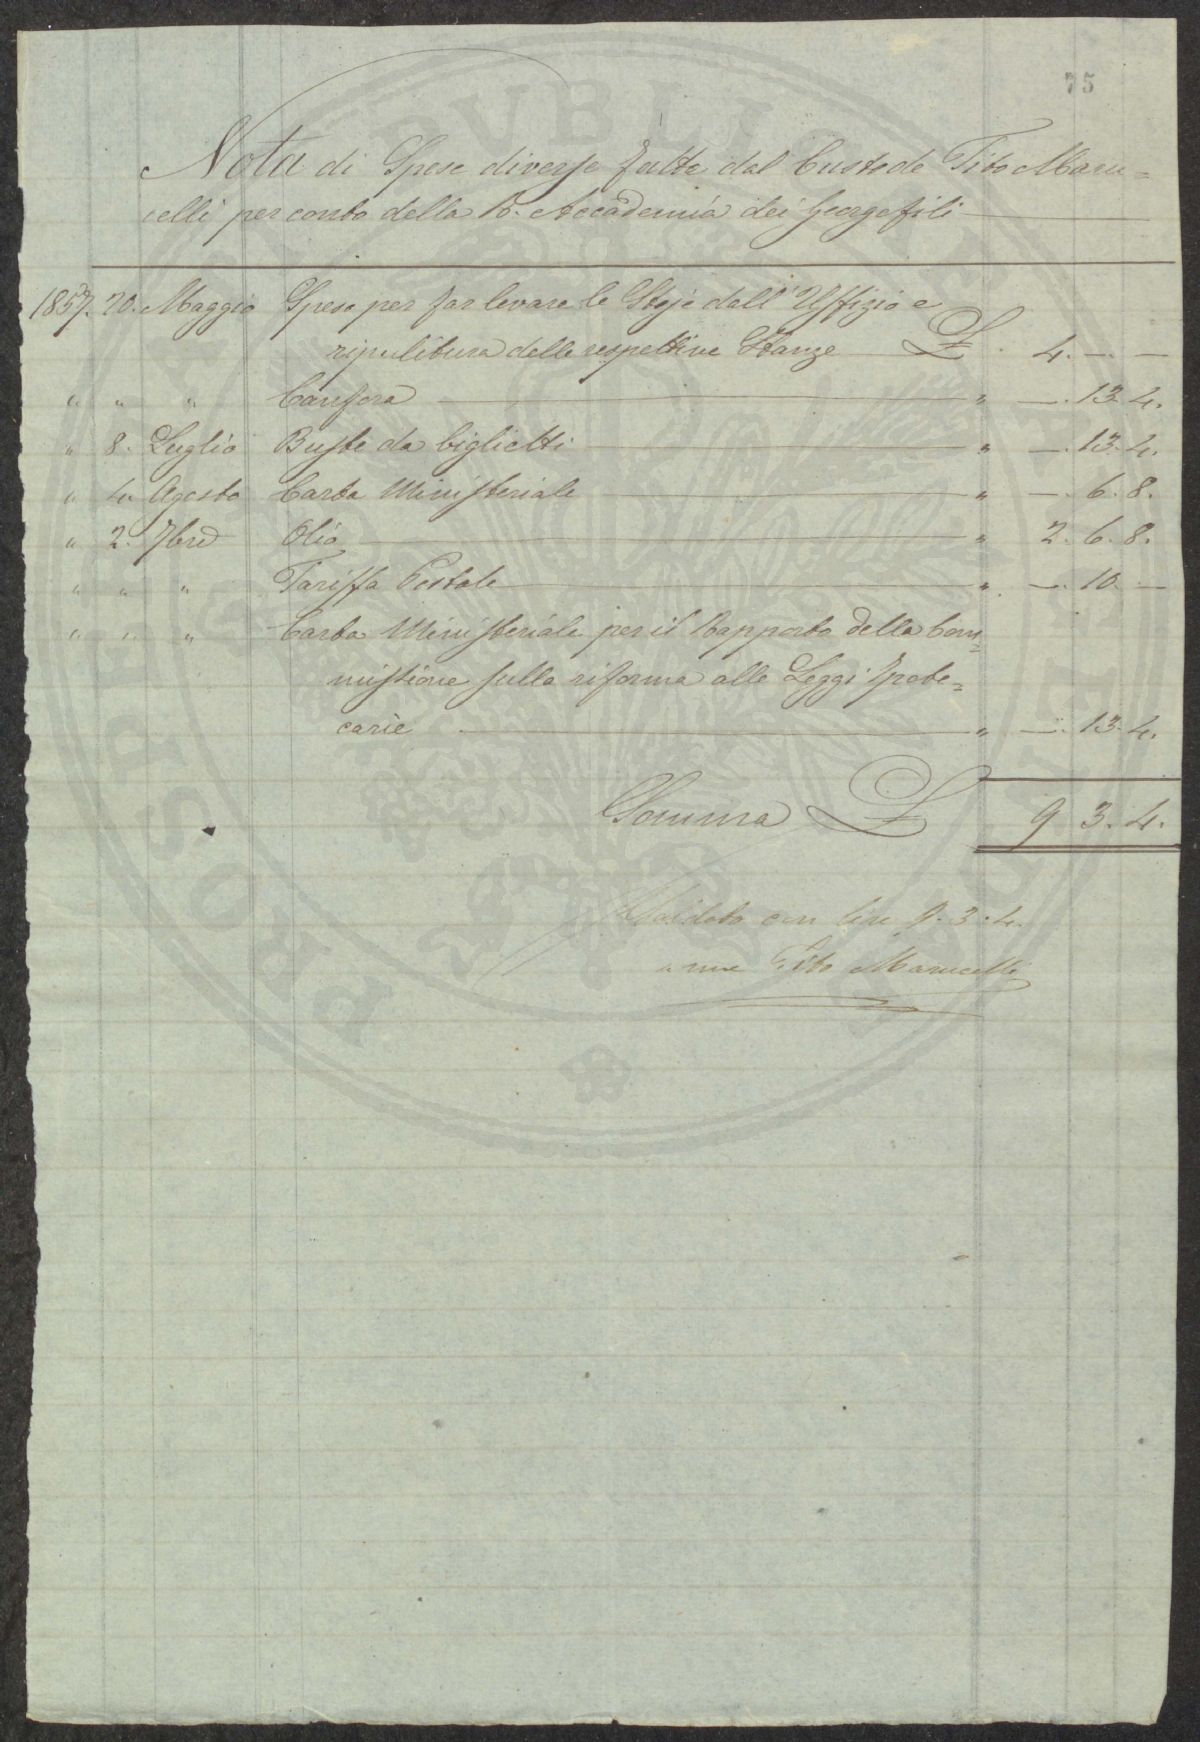 75
Nota di Spese diverse fatte dal Custode Tito Maru=
celli per conto della R. Accademia dei Georgofili
1857. 20. Maggio Spese per far levare le Stoje dall' Uffizio e
ripulitura delle respettive Stanze £. 4. — —
" " " Canfora " —. 13. 4.
" 8. Luglio Buste da biglietti " —. 13. 4.
" 4. Agosto Carta Ministeriale " —. 6. 8.
" 2. 7bre Olio " 2. 6. 8.
" " " Tariffa Postale " —. 10. —
" " " Carta Ministeriale per il Rapporto della Com=
missione sulla riforma alle Leggi Ipote=
carie " —. 13. 4.
Somma £ 9 3. 4.
Saldato con lire 9. 3. 4.
a me Tito Marucelli